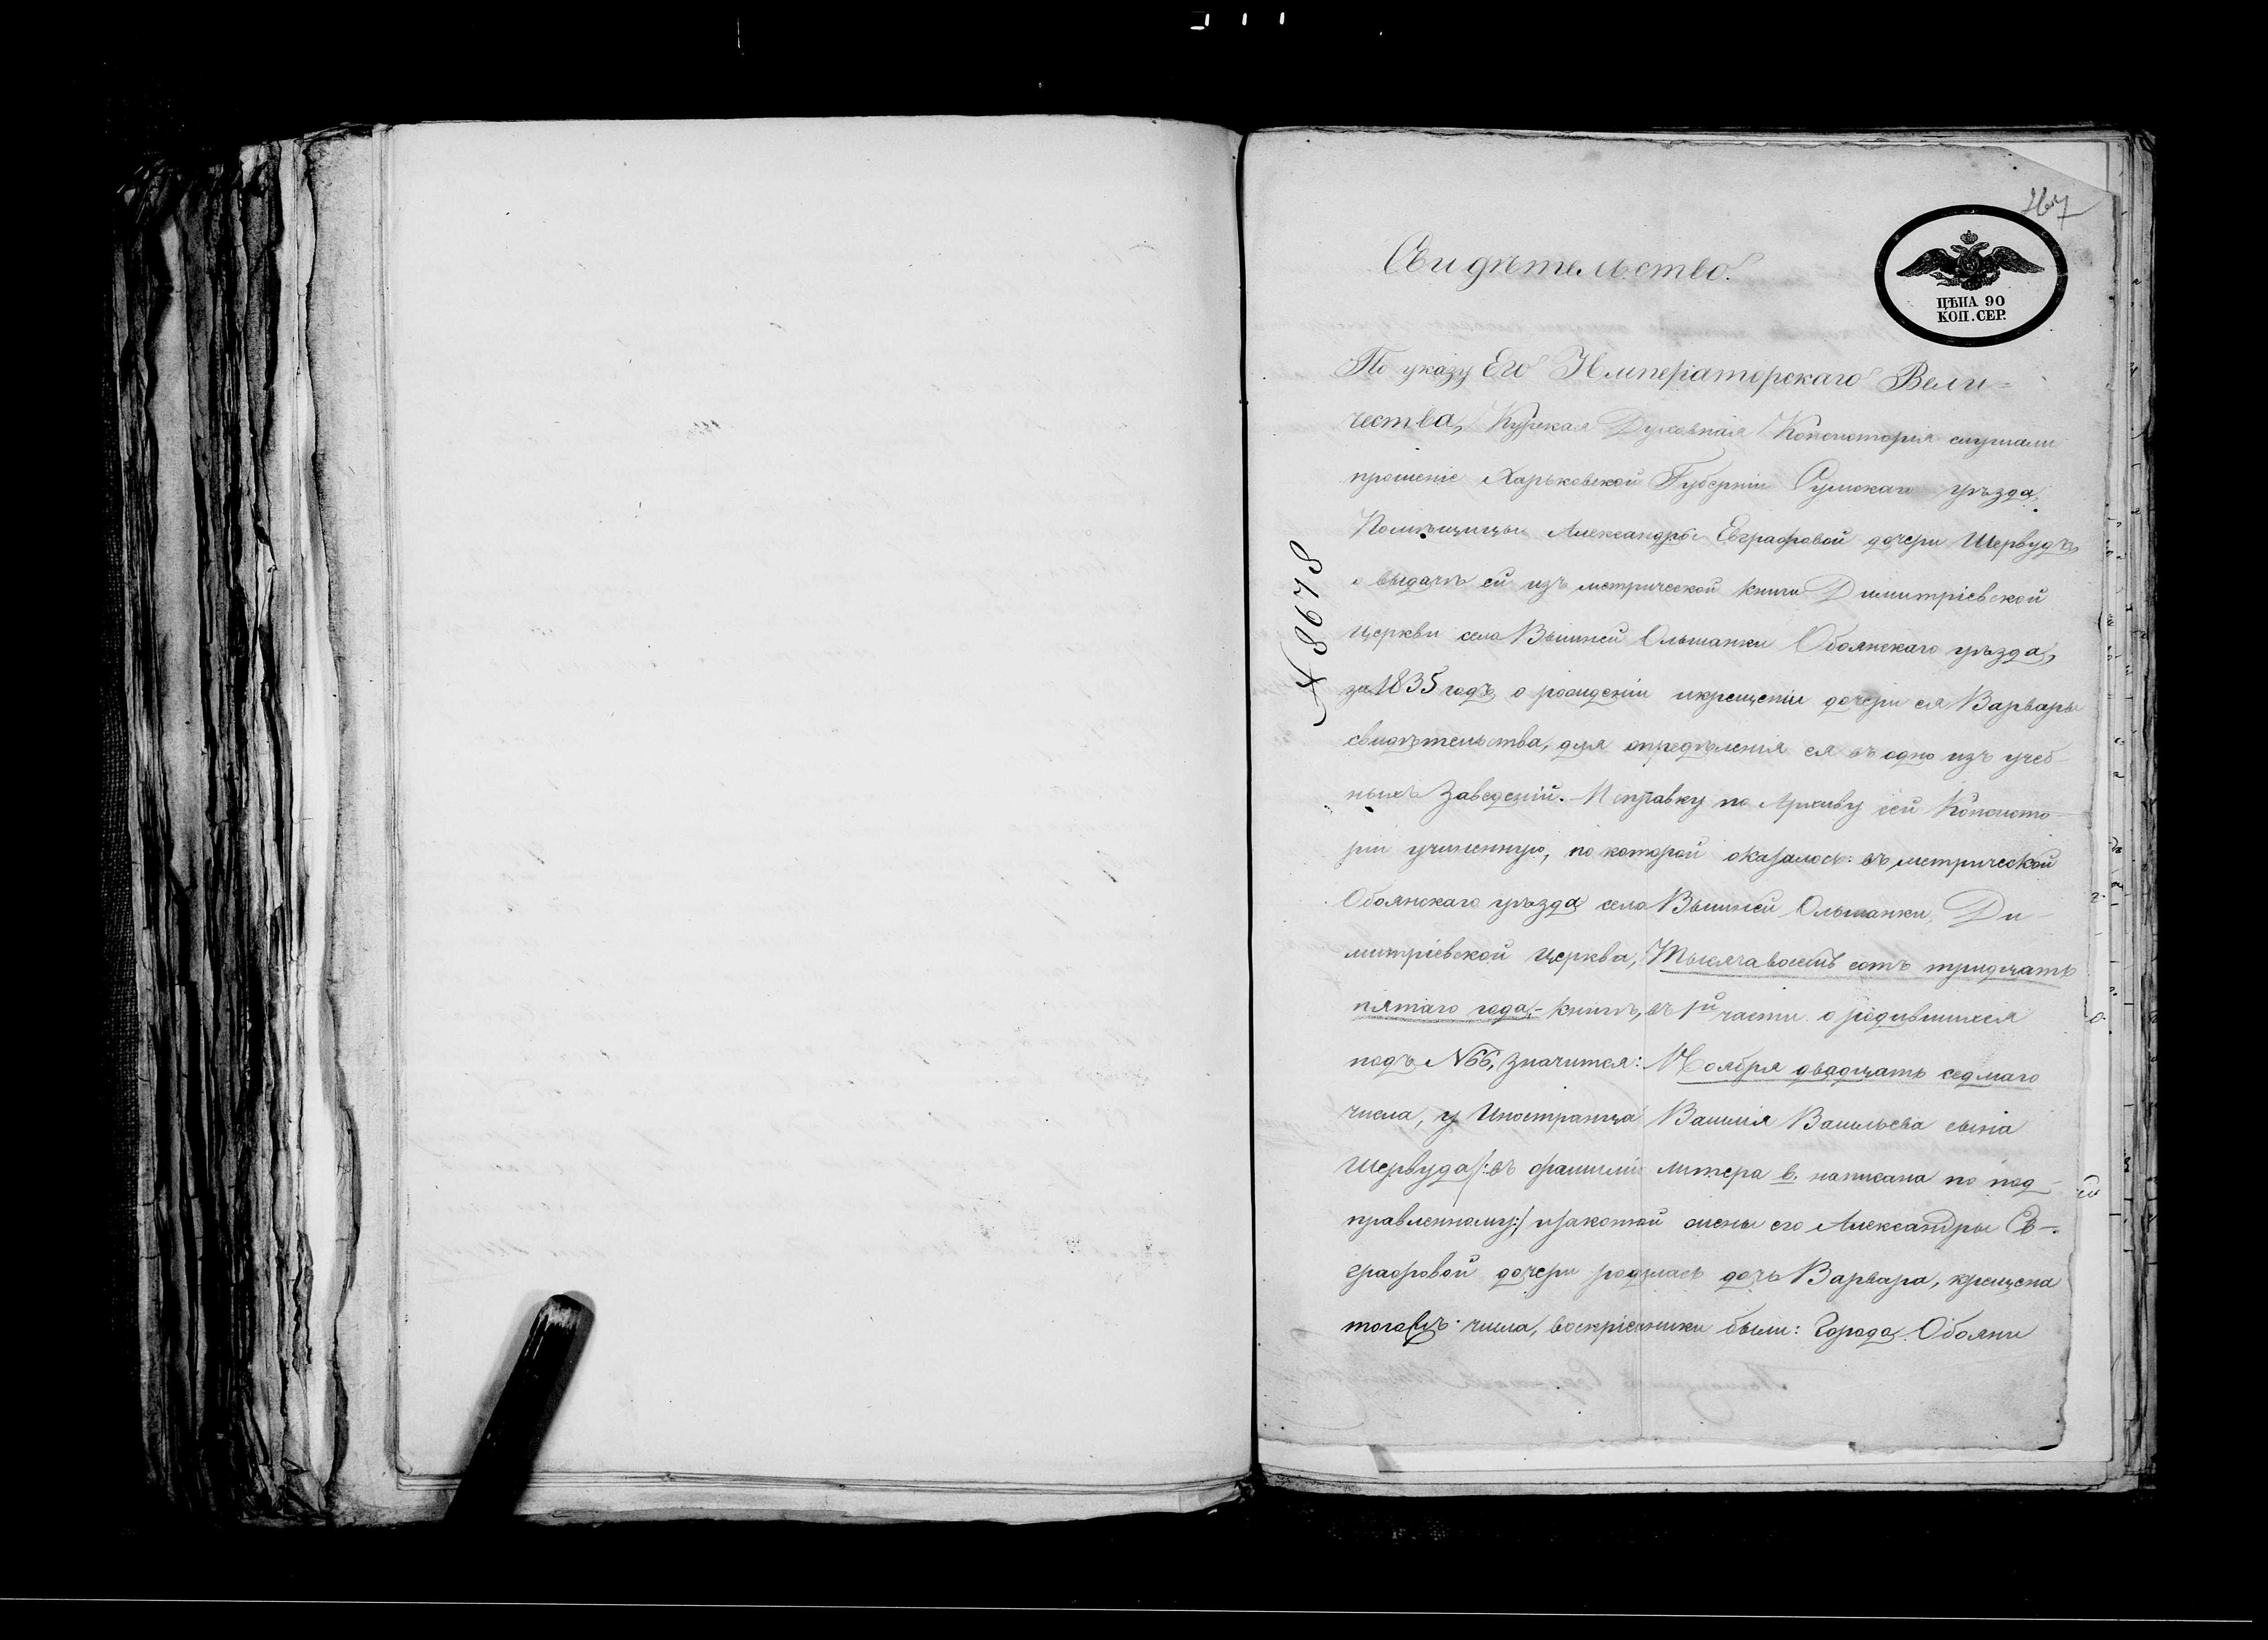 Свидѣтельство.
ЦѢНА 90
КОП. СЕР.
№ 8678
По указу Его Императорскаго Вели=
чества, Курская Духовная Консисторія слушали
прошеніе Харьковской Губерніи Сумскаго уѣзда,
Помѣщицы Александры Евграфовой дочери Шервудъ,
о выдачѣ ей изъ метрической книги Димитріевской
церкви села Вышней Ольшанки Обоянскаго уѣзда,
за 1835 годъ о рожденіи и крещеніи дочери ея Варвары
свидѣтельства, для опредѣленія ея въ одно изъ учеб-
ныхъ заведеній. И справку по Архиву сей Консисто-
ріи учиненную, по которой оказалось: въ метрической
Обоянскаго уѣзда села Вышней Ольшанки, Ди-
митріевской церкви, Тысяча восемь сотъ тридцать
пятаго года,- книгѣ, въ 1й части о родившихся
подъ №66, значится: Ноября двадцать седмаго
числа, у Иностранца Василія Васильева сына
Шервуда /:въ фамиліи литера в. написана по под-
правленному:/ и законной жены его Александры Ев-
графовой дочери родилась дочь Варвара, крещена
тогожъ числа, воспріемники были: Города Обояни